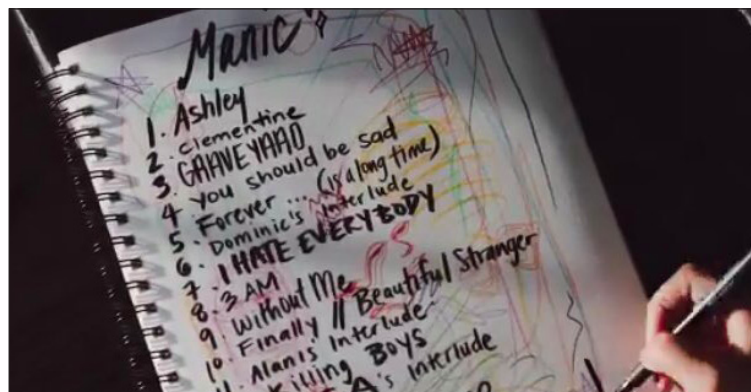 Manic
1. Ashley
2. clementine
3. GRAVEYARD
4. you should be sad
5. Forever ... (is a long time)
6. Dominic's Interlude
7. I HATE EVERYBODY
8. 3 AM
9. Without Me
10. Finally // Beautiful Stranger
11. Alanis' Interlude
killing BOYS
A's Interlude